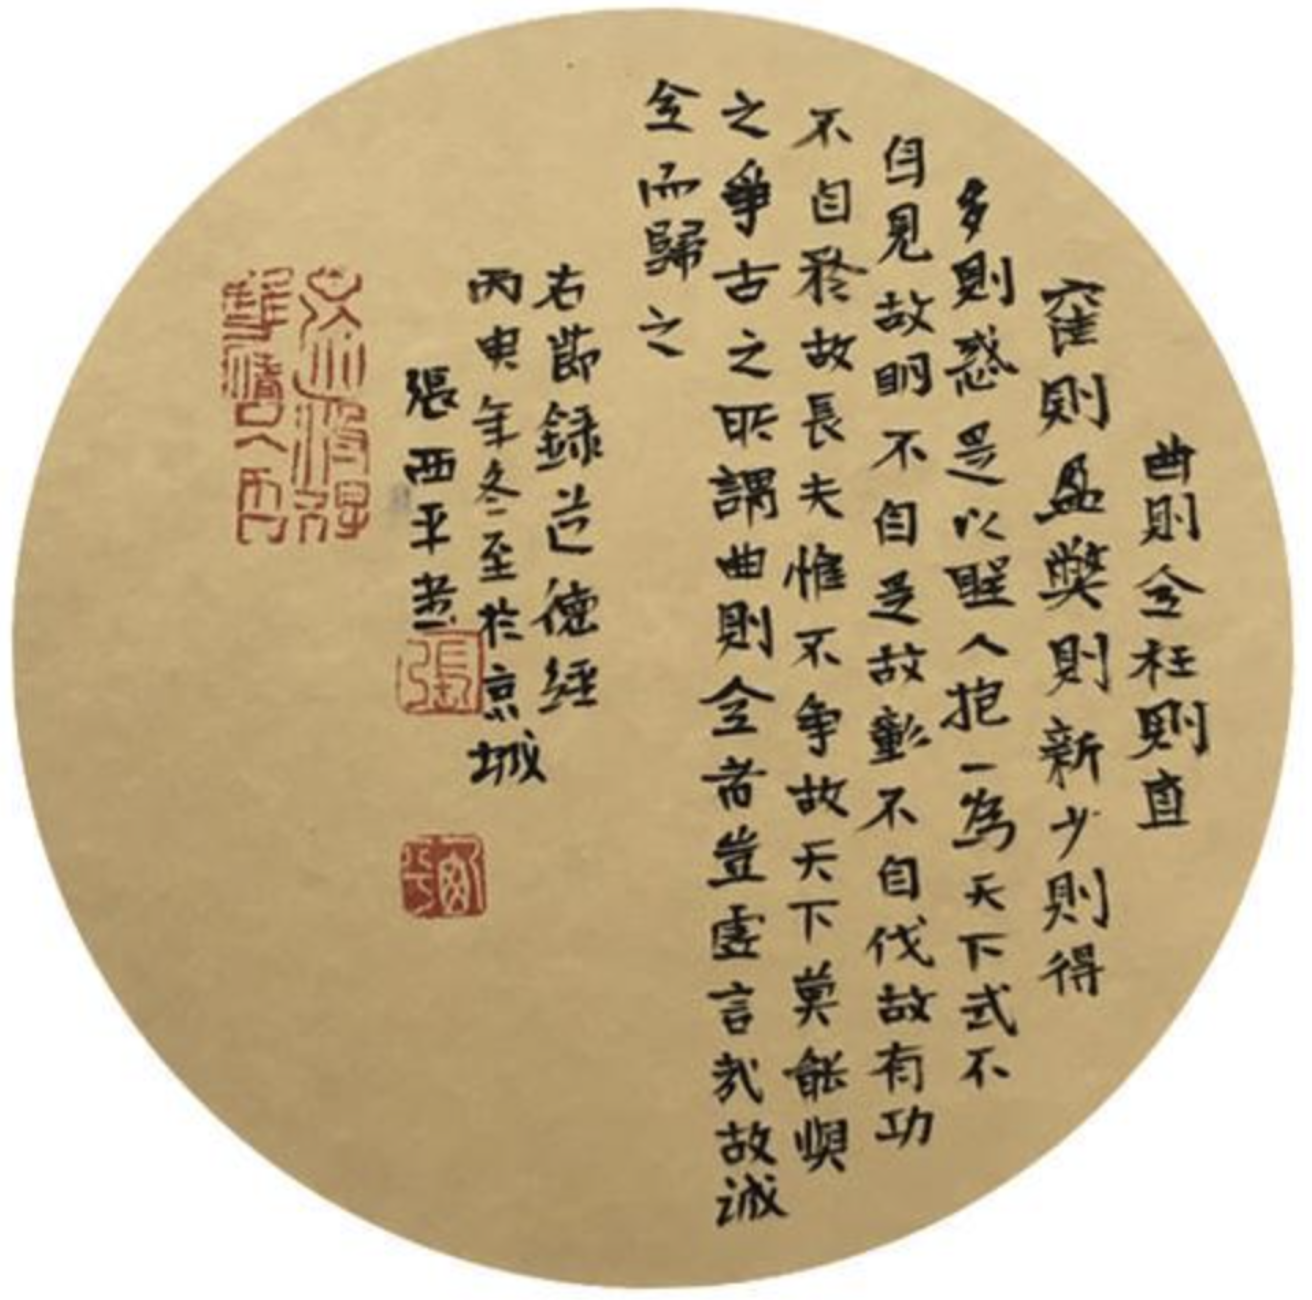 曲則全枉則直
窪則盈獘則新少則得
多則惑是以聖人抱一為天下式不
自見故明不自是故彰不自伐故有功
不自矜故長夫惟不爭故天下莫能與
之爭古之所謂曲則全者豈虛言哉故誠
全而歸之
右節錄道德經
丙申年冬至於京城
張西平書
張